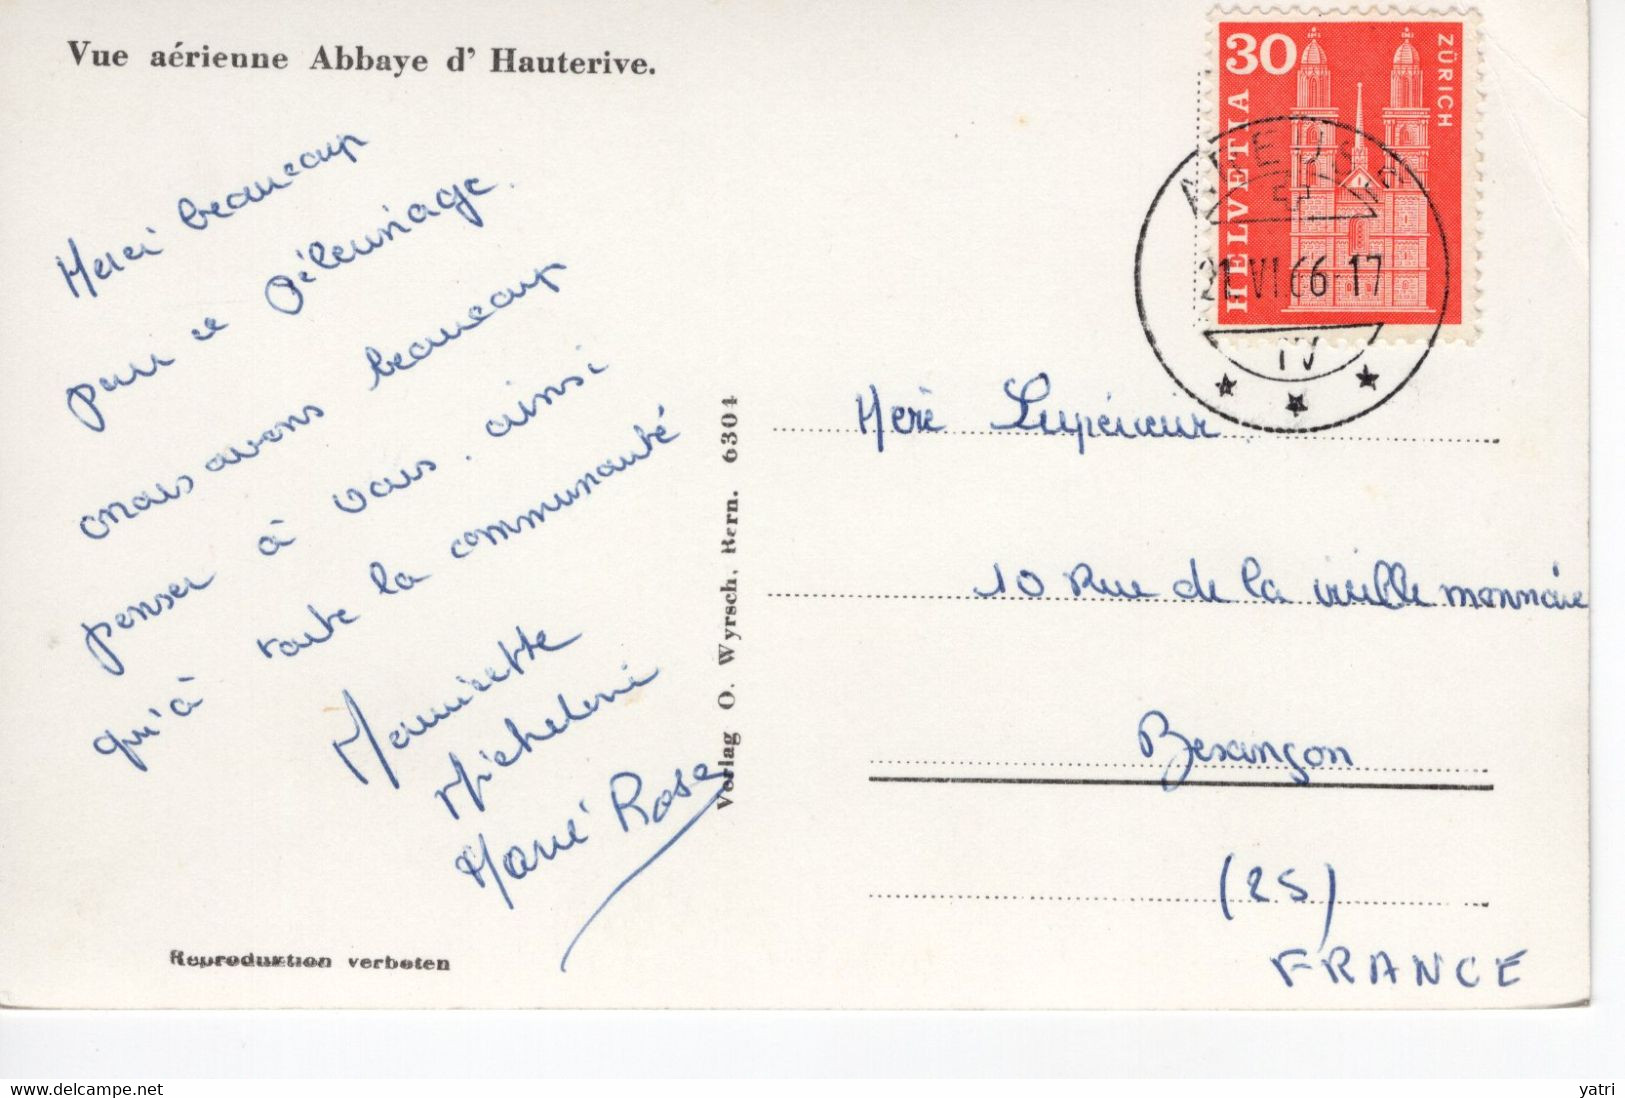 Vue aérienne Abbaye d' Hauterive.
Merci beaucoup
pour ce pélerinage.
nous avons beaucoup
penser à vous. ainsi
qu'à toute la communauté
Mauricette
Micheline
Marie Rose
Reproduktion verboten
Verlag O. Wyrsch, Bern. 6301
30
HELVETIA
ZÜRICH
21.VI.66-17
Mère Supérieur
10 Rue de la vieille monnaie
Besançon
(25)
FRANCE
www.delcampe.net
yatri